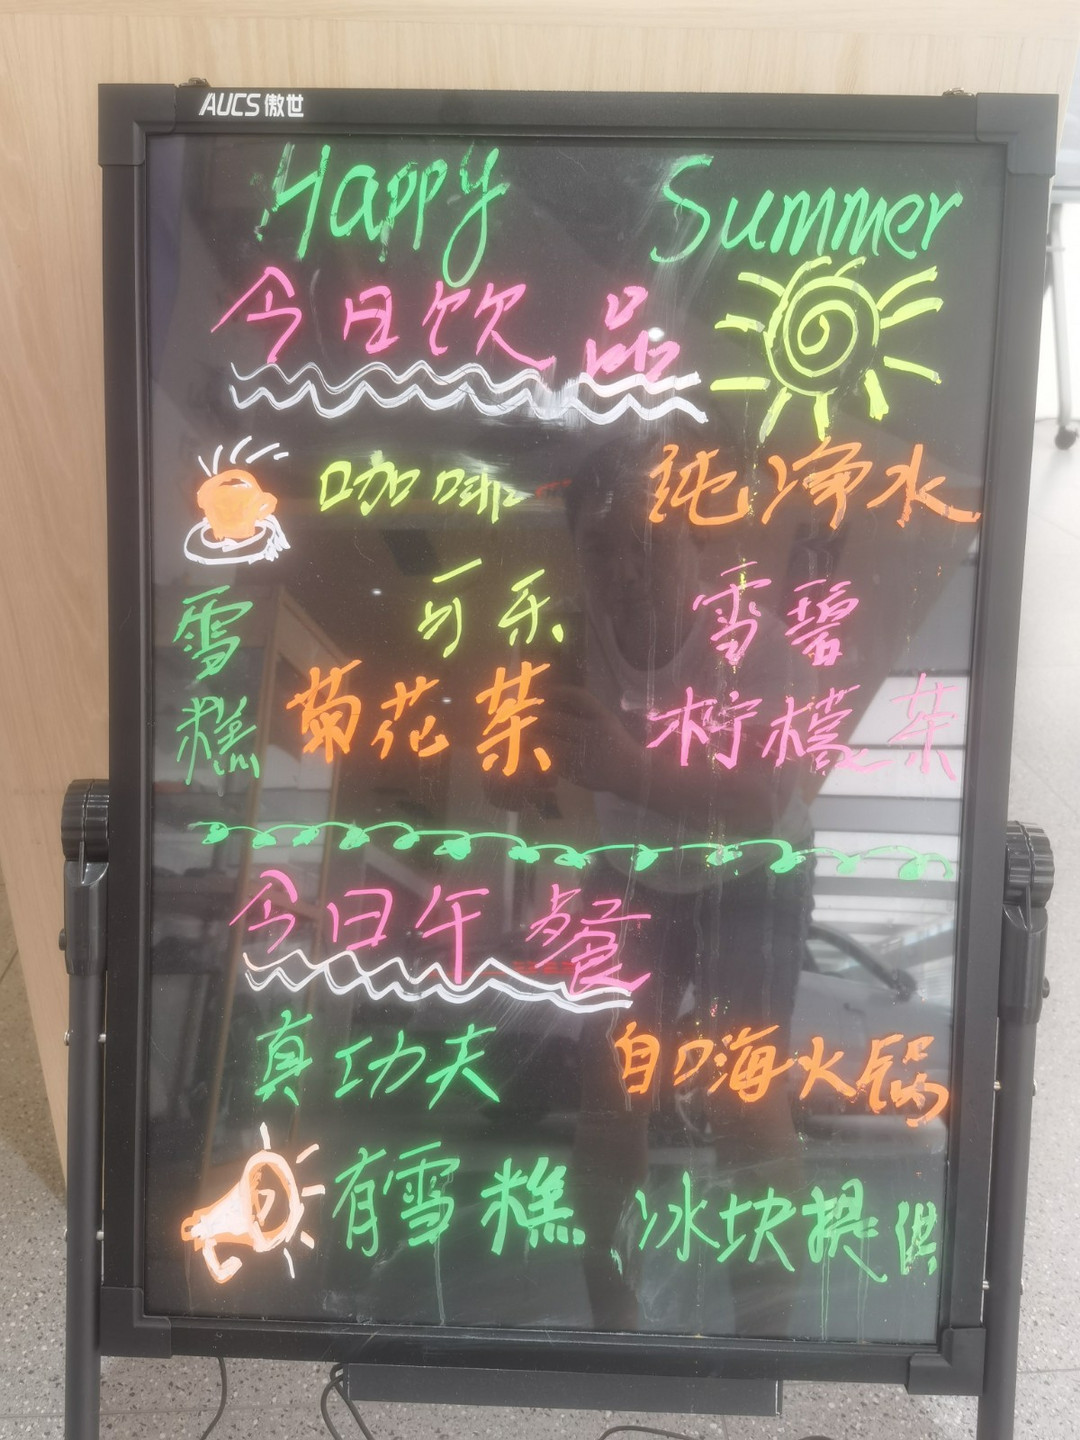 AUCS 傲世
Happy Summer
今日饮品
咖啡 纯净水
可乐 雪碧
雪糕
菊花茶 柠檬茶
今日午餐
真功夫 自口嗨火锅
有雪糕 冰块提供